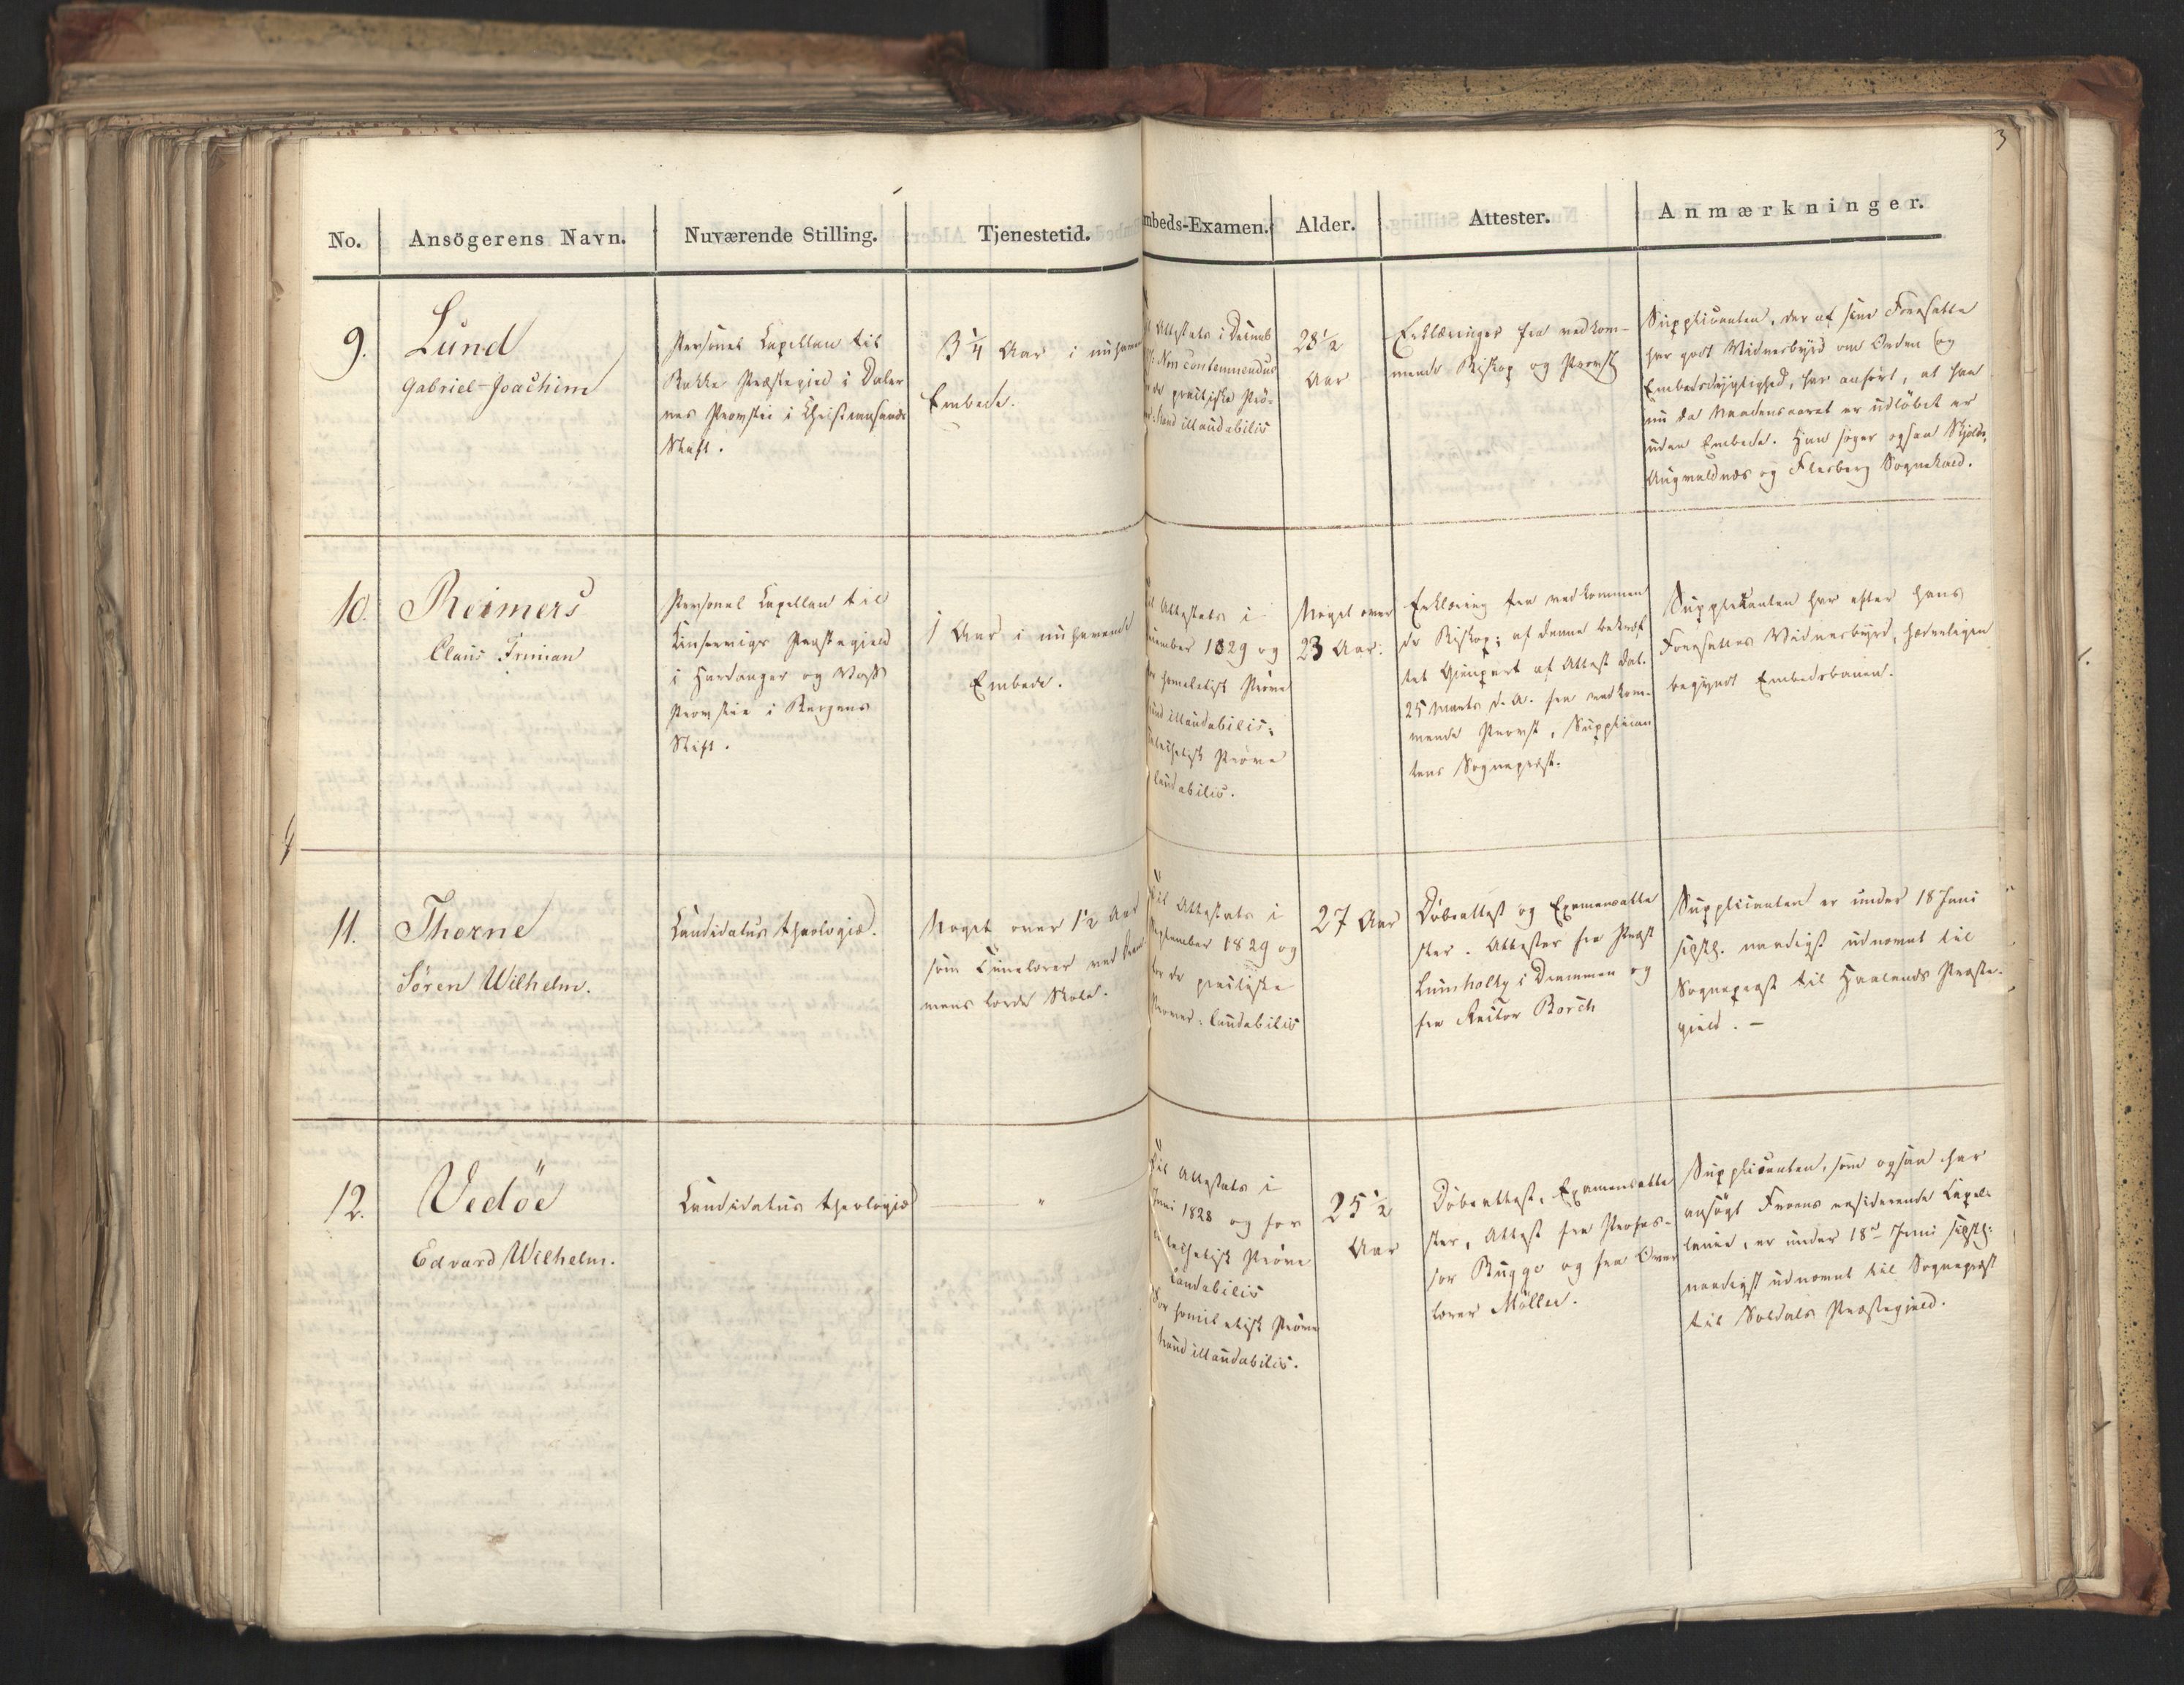 3
No.
Ansögerens Navn.
Nuværende Stilling.
Tjenestetid.
mbeds-Examen.
Alder.
Attester.
Anmærkninger.
9.
Lund
Gabriel-Joachim
Personel Capellan til
Bakke Præstegjeld i Daler
nes Provstie i Christiansands
Stift.
3 1/4 Aar i nuhavende
Embede.
Attestats i Decemb
Non contemnendus
practiske Prö-
Haud illaudabilis
28 1/2
Aar
Erklæringer fra vedkom-
mende Biskop og Provst
Supplicanten, der af sine Foresatte
har godt Vidnesbyrd om Orden og
Embedsdygtighed, har anført, at han
nu da Naadensaaret er udløbet er
uden Embede. Han søger ogsaa Skjolds,
Augvaldnæs og Flesberg Sognekald.
10.
Reimers
Claus Friman
Personel Capellan til
Kinservigs Præstegjeld
i Hardanger og Voss
Provstie i Bergens
Stift.
1 Aar i nuhavende
Embede.
Attestats i
cember 1829 og
homiletisk Prøve
haud illaudabilis;
catechetisk Prøve
laudabilis.
Noget over
23 Aar.
Erklæring fra vedkommen
de Biskop; af denne bekræf
tet Gjenpart af Attest dat.
25 Marts d. A. fra vedkom-
mende Provst, Supplican
tens Sognepræst.
Supplicanten har efter hans
Foresattes Vidnesbyrd, hæderligen
begyndt Embedsbanen.
11.
Thorne
Sören Wilhelm.
Candidatus theologiæ.
Noget over 1 1/2 Aar
som Timelærer ved Dram
mens lærde Skole.
Til Attestats i
September 1829 og
for de practiske
Prøver: laudabilis
27 Aar
Døbeattest og Examensatte
ster. Attester fra Præst
Lumholtz i Drammen og
fra Rector Borch
Supplicanten er under 18 Juni
sidstl. naadigst udnævnt til
Sognepræst til Haalands Præste-
gjeld. -
12.
Vedöe
Edvard Wilhelm.
Candidatus theologiæ
"
Til Attestats i
Juni 1828 og for
catechetisk Prøve
Laudabilis
For homiletisk Prøve
haud illaudabilis.
25 1/2
Aar
Døbeattest, Examensatte
ster, Attest fra Profes-
sor Bugge og fra Over
lærer Möller.
Supplicanten, som ogsaa har
ansøgt Froens residerende Capel-
lanie, er under 18de Juni sidstl.
naadigst udnævnt til Sognepræst
til Soldals Præstegjeld.